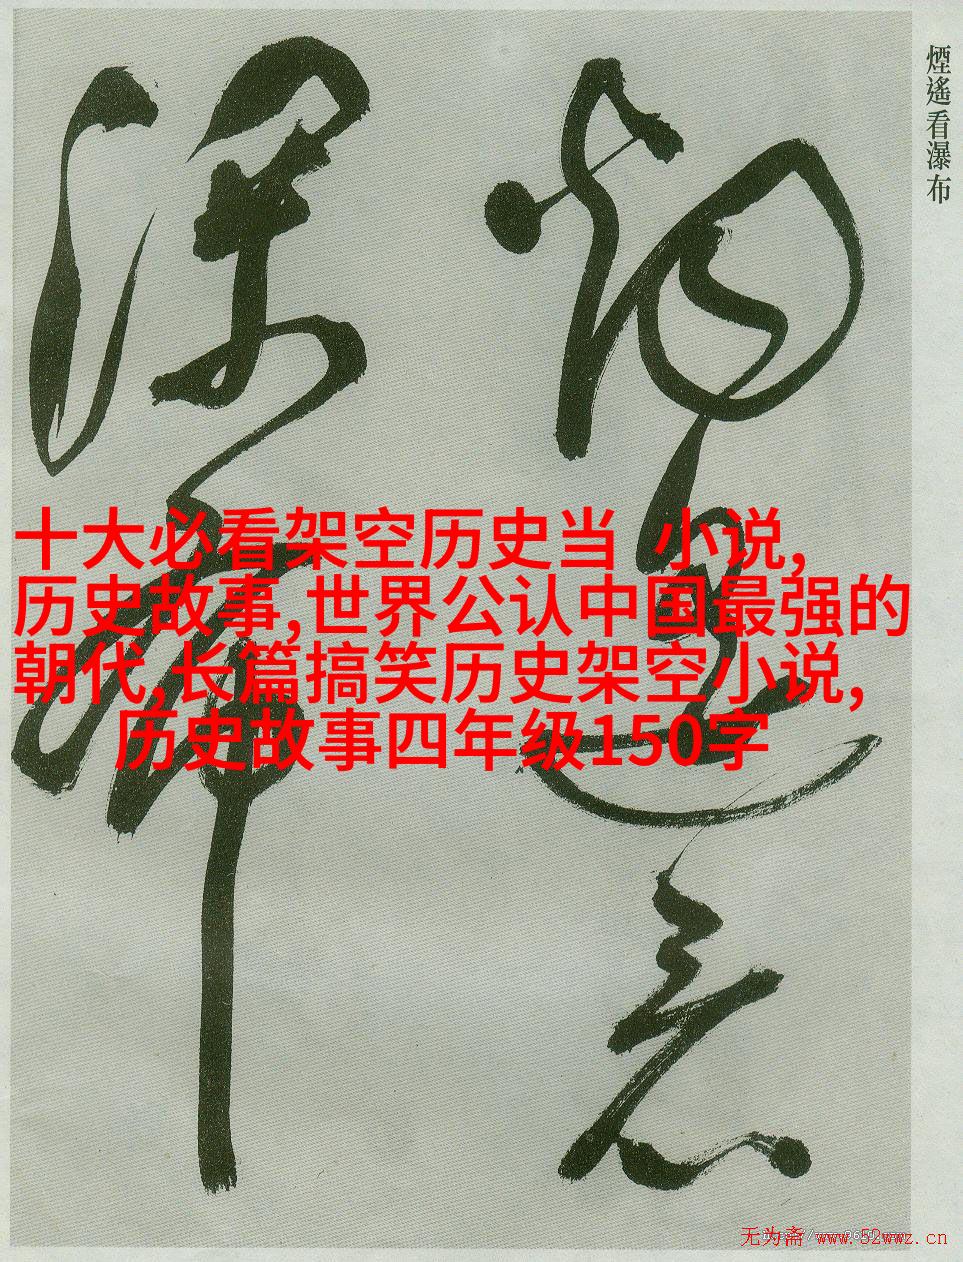 煙遙看瀑布
十大必看架空历史当 小说,
历史故事,世界公认中国最强的
朝代,长篇搞笑历史架空小说,
历史故事四年级150字
无为斋 www.52wwz.cn